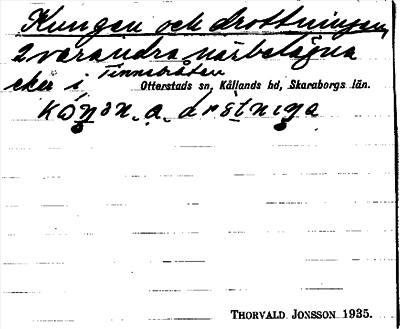 Kungen och drottningen,
2 varandra närbelägna
eker i Tinnebråten
Otterstads sn, Kållands hd, Skaraborgs län.
a
THORVALD JONSSON 1935.